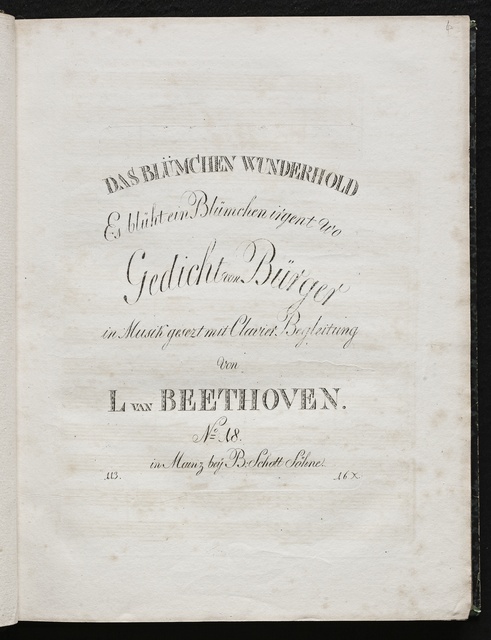 DAS BLÜMCHEN WUNDERHOLD
Es blüht ein Blümchen irgent wo
Gedicht von Bürger
in Musik gesezt mit Clavier Begleitung
von
L VAN BEETHOVEN.
No 18.
in Mainz beÿ B: Schott Söhne.
113. 16 x